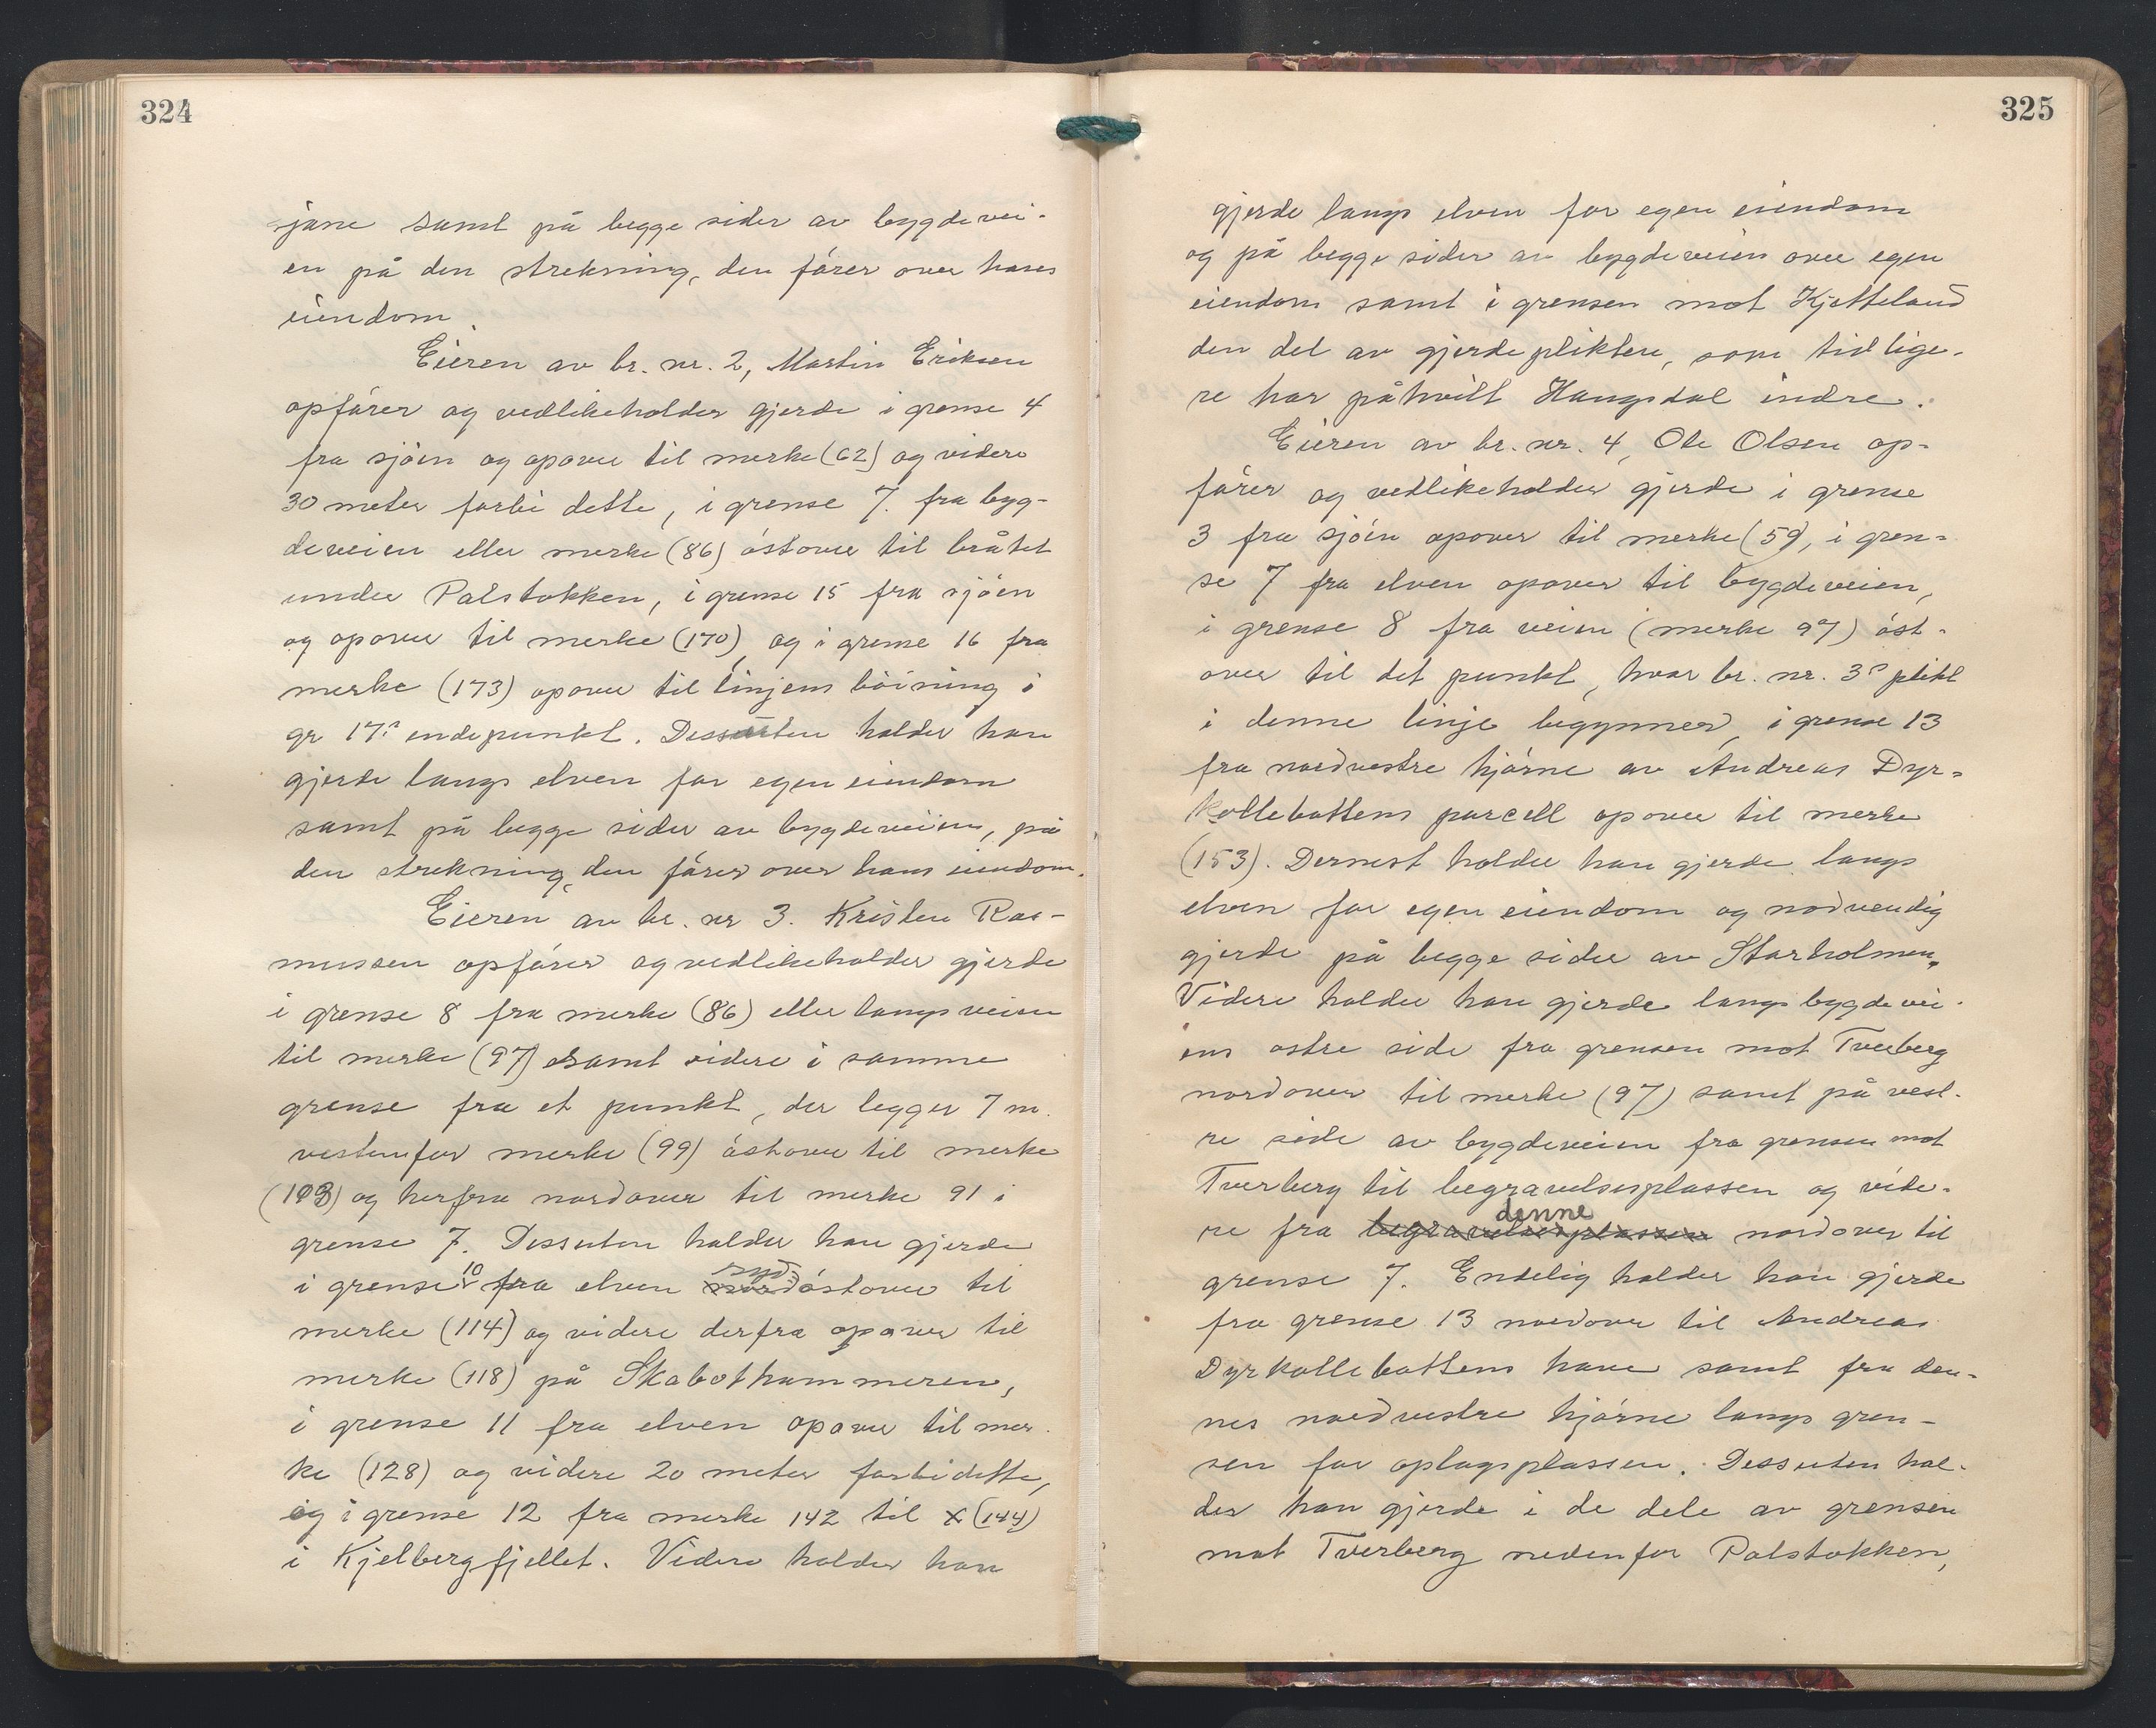 324
jane samt på begge sider av bygdevei-
en på den strekning, den fører over hans
eiendom.
Eieren av br. nr. 2, Martin Eriksen
opfører og vedlikeholder gjerde i grense 4
fra sjøen og opover til merke (62) og videre
30 meter forbi dette, i grense 7. fra byg-
deveien eller merke (86) østover til bråtet
under Palstokken, i grense 15 fra sjøen
og opover til merke (170), og i grense 16 fra
merke (173) opover til linjens bøining i
gr 17s endepunkt. Dessuten holder han
gjerde langs elven for egen eiendom
samt på begge sider av bygdeveien, på
den strekning, den fører over hans eiendom.
Eieren av br. nr 3. Kristen Ras-
mussen opfører og vedlikeholder gjerde
i grense 8 fra merke (86) eller langs veien
til merke (97) samt videre i samme
grense fra et punkt, der legger 7 m.
vestenfor merke (99) østover til merke
(103) og herfra nordover til merke 91 i
grense 7. Dessuten holder han gjerde
i grense 10 fra elven syd-østover til
merke (114) og videre derfra opover til
merke (118) på Skabothammeren,
i grense 11 fra elven opover til mer-
ke (128) og videre 20 meter forbi dette,
og i grense 12 fra merke 142 til x (144)
i Kjelbergfjellet. Videre holder han
325
gjerde langs elven for egen eiendom
og på begge sider av bygdeveien over egen
eiendom samt i grensen mot Kjetteland
den del av gjerdeplikten, som tidlige-
re har påhvilt Haugsdal indre.
Eieren av br. nr. 4, Ole Olsen op-
fører og vedlikeholder gjerde i grense
3 fra sjøen opover til merke (59), i gren-
se 7 fra elven opover til bygdeveien,
i grense 8 fra veien (merke 97) øst-
over til det punkt, hvor br. nr. 3s plikt
i denne linje begynner, i grense 13
fra nordvestre hjørne av Andreas Dyr-
kollebottens parcell opover til merke
(153). Dernest holder han gjerde langs
elven for egen eiendom og nødvendig
gjerde på begge sider av Storholmen.
Videre holder han gjerde langs bygdevei-
ens østre side fra grensen mot Tverberg
nordover til merke (97) samt på vest-
re side av bygdeveien fra grensen mot
Tverberg til begravelsesplassen og vide-
re fra begravelsesplassen denne nordover til
grense 7. Endelig holder han gjerde
fra grense 13 nordover til Andreas
Dyrkollebottens have samt fra den-
nes nordvestre hjørne langs gren-
sen for oplagsplassen. Dessuten hol-
der han gjerde i de dele av grensen
mot Tverberg nedenfor Palstokken,